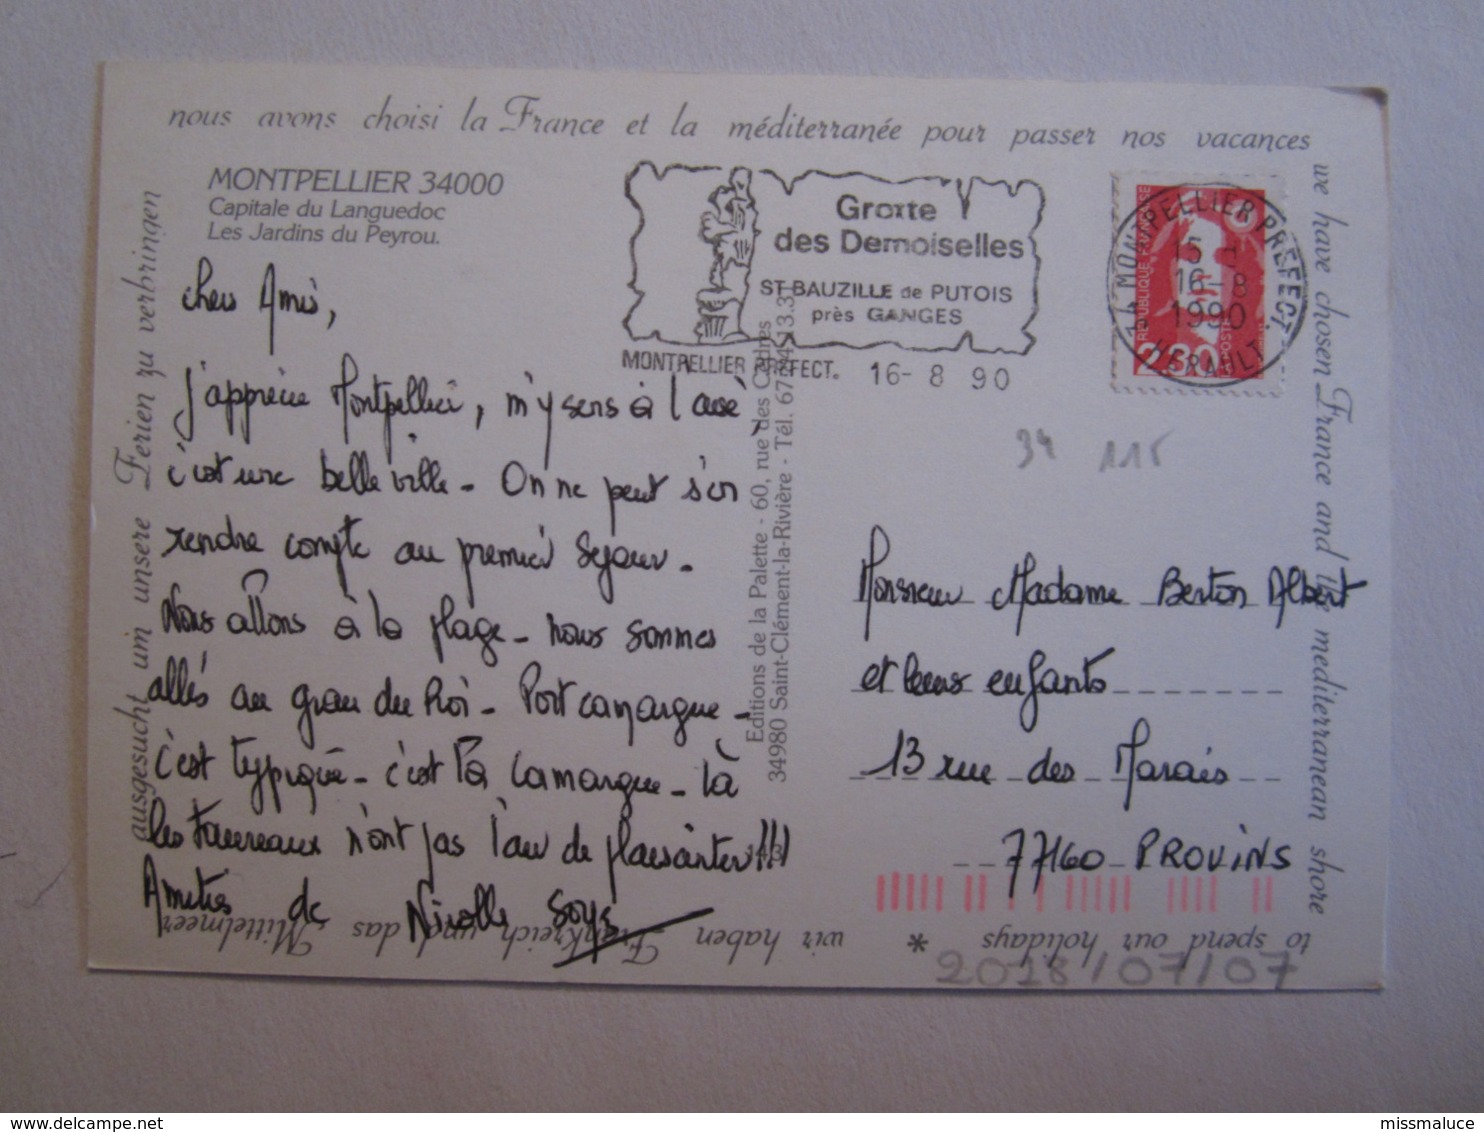 nous avons choisi la France et la méditerranée pour passer nos vacances
we have chosen France and the mediterranean shore
to spend our holidays *
wir haben Frankreich und das Mittelmeer
ausgesucht um unsere Ferien zu verbringen
MONTPELLIER 34000
Capitale du Languedoc
Les Jardins du Peyrou.
Grotte
des Demoiselles
ST BAUZILLE de PUTOIS
près GANGES
MONTPELLIER PREFECT. 16- 8 90
34 MONTPELLIER PREFECT.
15
16-8
1990
HERAULT
REPUBLIQUE FRANCAISE
2.30
LA POSTE
chers Amis,
j'apprécie Montpellier, m'y sens à l'aise,
c'est une belle ville - On ne peut s'en
rendre compte au premier séjour -
Nous allons à la plage - nous sommes
allés au grau du Roi - Port camargue -
c'est typique - c'est la Camargue - là
les taureaux n'ont pas l'air de plaisanter!!!
Amitiés de Nicolle
Editions de la Palette - 60, rue des Cadres
34980 Saint-Clément-la-Rivière - Tél. 67.84.13.31
143
34 115
Monsieur Madame Berton Albert
et leurs enfants
13 rue des Marais
77160 PROVINS
2018/07/07
delcampe.net
missmaluce